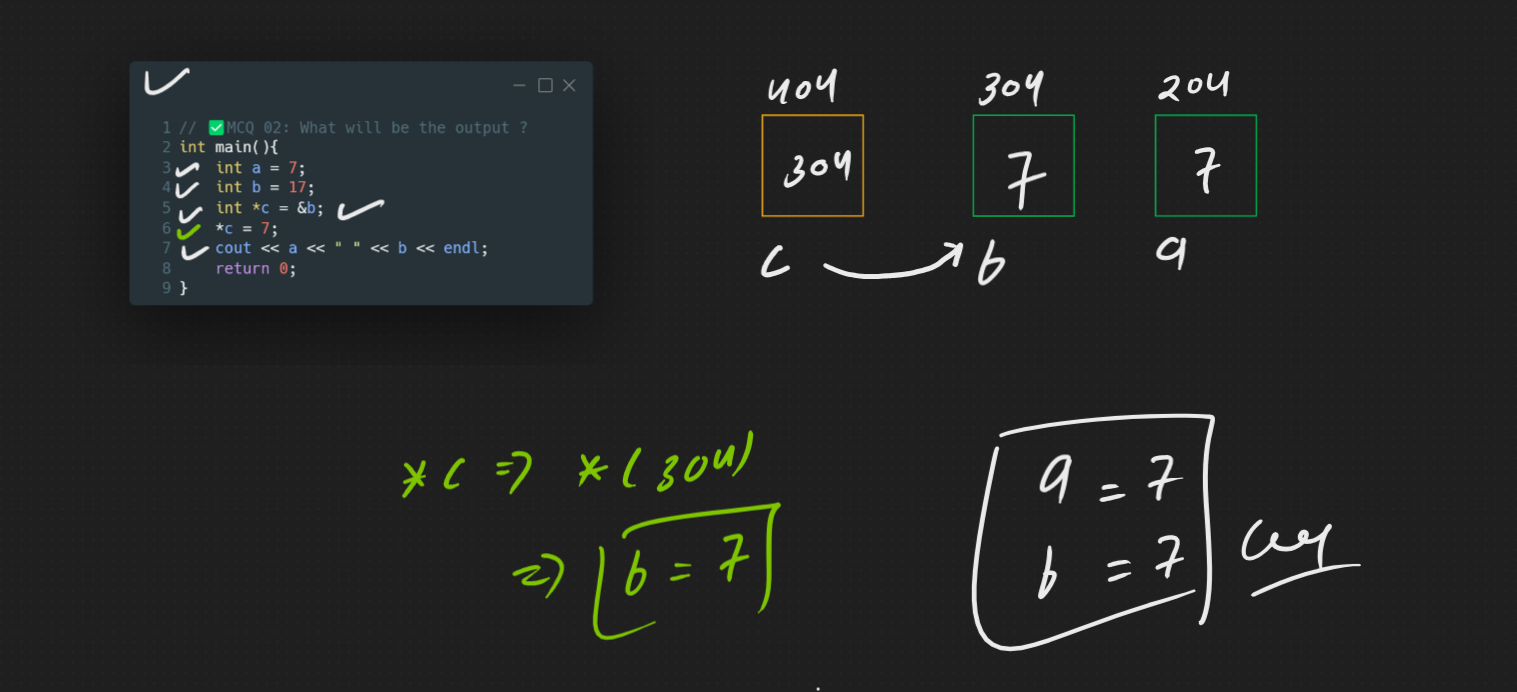 1 // ✅MCQ 02: What will be the output ?
2 int main(){
3 int a = 7;
4 int b = 17;
5 int *c = &b;
6 *c = 7;
7 cout << a << " " << b << endl;
8 return 0;
9 }
404 304 204
304 7 7
c b a
*c => *(304)
=> b = 7
a = 7
b = 7